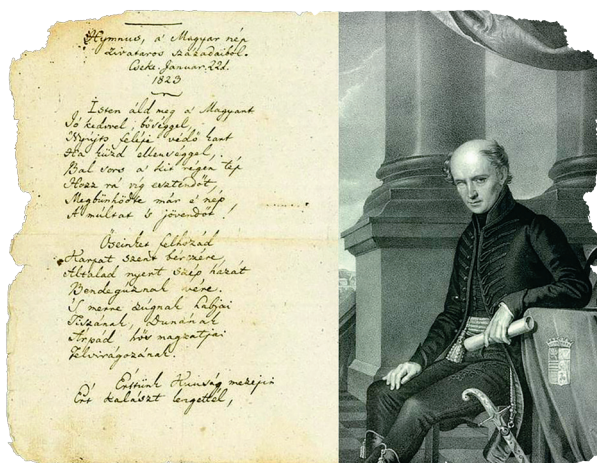 Hymnus, a' Magyar nép
zivataros századaiból.
Cseke. Januar. 22d.
1823
Isten áld meg a Magyart
Jó kedvvel bőséggel,
Nyújts feléje védő kart
Ha küzd ellenséggel,
Bal sors a' kit régen tép
Hozz rá víg esztendőt,
Megbűnhődte már e' nép
A' múltat 's jövendőt!
Őseinket felhozád
Kárpát szent bérczére,
Általad nyert szép hazát
Bendegúznak vére.
'S merre zúgnak habjai
Tiszának, Dunának
Árpád hős magzatjai
Felvirágozának.
Értünk Kunság mezején
Ért kalászt lengettél,